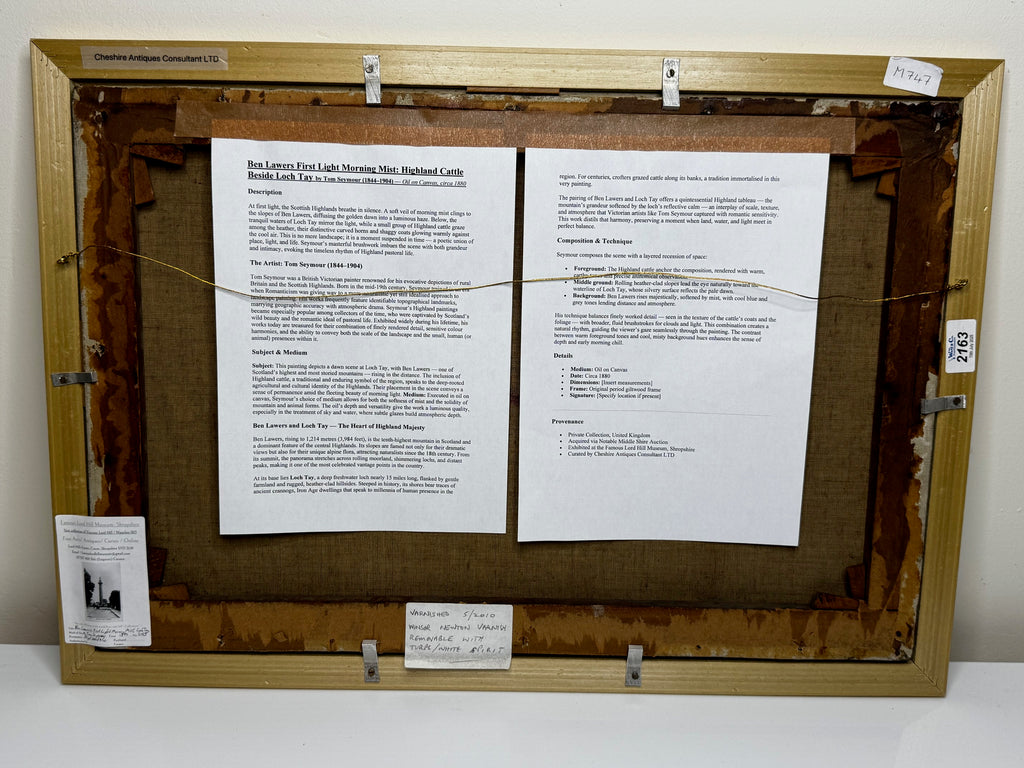 Cheshire Antiques Consultant LTD
M747
Ben Lawers First Light Morning Mist: Highland Cattle
Beside Loch Tay by Tom Seymour (1844–1904) — Oil on Canvas, circa 1880
Description
At first light, the Scottish Highlands breathe in silence. A soft veil of morning mist clings to
the slopes of Ben Lawers, diffusing the golden dawn into a luminous haze. Below, the
tranquil waters of Loch Tay mirror the light, while a small group of Highland cattle graze
among the heather, their distinctive curved horns and shaggy coats glowing warmly against
the cool air. This is no mere landscape; it is a moment suspended in time — a poetic union of
place, light, and life. Seymour's masterful brushwork imbues the scene with both grandeur
and intimacy, evoking the timeless rhythm of Highland pastoral life.
The Artist: Tom Seymour (1844–1904)
Tom Seymour was a British Victorian painter renowned for his evocative depictions of rural
Britain and the Scottish Highlands. Born in the mid-19th century, Seymour
when Romanticism was giving way to a more naturalistic yet still idealised approach to
landscape painting. His works frequently feature identifiable topographical landmarks,
marrying geographic accuracy with atmospheric drama. Seymour's Highland paintings
became especially popular among collectors of the time, who were captivated by Scotland's
wild beauty and the romantic ideal of pastoral life. Exhibited widely during his lifetime, his
works today are treasured for their combination of finely rendered detail, sensitive colour
harmonies, and the ability to convey both the scale of the landscape and the small, human (or
animal) presences within it.
Subject & Medium
Subject: This painting depicts a dawn scene at Loch Tay, with Ben Lawers — one of
Scotland's highest and most storied mountains — rising in the distance. The inclusion of
Highland cattle, a traditional and enduring symbol of the region, speaks to the deep-rooted
agricultural and cultural identity of the Highlands. Their placement in the scene conveys a
sense of permanence amid the fleeting beauty of morning light. Medium: Executed in oil on
canvas, Seymour's choice of medium allows for both the softness of mist and the solidity of
mountain and animal forms. The oil's depth and versatility give the work a luminous quality,
especially in the treatment of sky and water, where subtle glazes build atmospheric depth.
Ben Lawers and Loch Tay — The Heart of Highland Majesty
Ben Lawers, rising to 1,214 metres (3,984 feet), is the tenth-highest mountain in Scotland and
a dominant feature of the central Highlands. Its slopes are famed not only for their dramatic
views but also for their unique alpine flora, attracting naturalists since the 18th century. From
its summit, the panorama stretches across rolling moorland, shimmering lochs, and distant
peaks, making it one of the most celebrated vantage points in the country.
At its base lies Loch Tay, a deep freshwater loch nearly 15 miles long, flanked by gentle
farmland and rugged, heather-clad hillsides. Steeped in history, its shores bear traces of
ancient crannogs, Iron Age dwellings that speak to millennia of human presence in the
region. For centuries, crofters grazed cattle along its banks, a tradition immortalised in this
very painting.
The pairing of Ben Lawers and Loch Tay offers a quintessential Highland tableau — the
mountain's grandeur softened by the loch's reflective calm — an interplay of scale, texture,
and atmosphere that Victorian artists like Tom Seymour captured with romantic sensitivity.
This work distils that harmony, preserving a moment when land, water, and light meet in
perfect balance.
Composition & Technique
Seymour composes the scene with a layered recession of space:
• Foreground: The Highland cattle anchor the composition, rendered with warm,
earthy tones and precise anatomical observation.
• Middle ground: Rolling heather-clad slopes lead the eye naturally toward the
waterline of Loch Tay, whose silvery surface reflects the pale dawn.
• Background: Ben Lawers rises majestically, softened by mist, with cool blue and
grey tones lending distance and atmosphere.
His technique balances finely worked detail — seen in the texture of the cattle's coats and the
foliage — with broader, fluid brushstrokes for clouds and light. This combination creates a
natural rhythm, guiding the viewer's gaze seamlessly through the painting. The contrast
between warm foreground tones and cool, misty background hues enhances the sense of
depth and early morning chill.
Details
• Medium: Oil on Canvas
• Date: Circa 1880
• Dimensions: [Insert measurements]
• Frame: Original period giltwood frame
• Signature: [Specify location if present]
Provenance
• Private Collection, United Kingdom
• Acquired via Notable Middle Shire Auction
• Exhibited at the Famous Lord Hill Museum, Shropshire
• Curated by Cheshire Antiques Consultant LTD
2163
Famous Lord Hill Museum- Shropshire
Fine Arts/ Antiques/ Curios / Online
VARNISHED 5/2010
WINSOR NEWTON VARNISH
REMOVABLE WITH
TURPS/WHITE SPIRIT